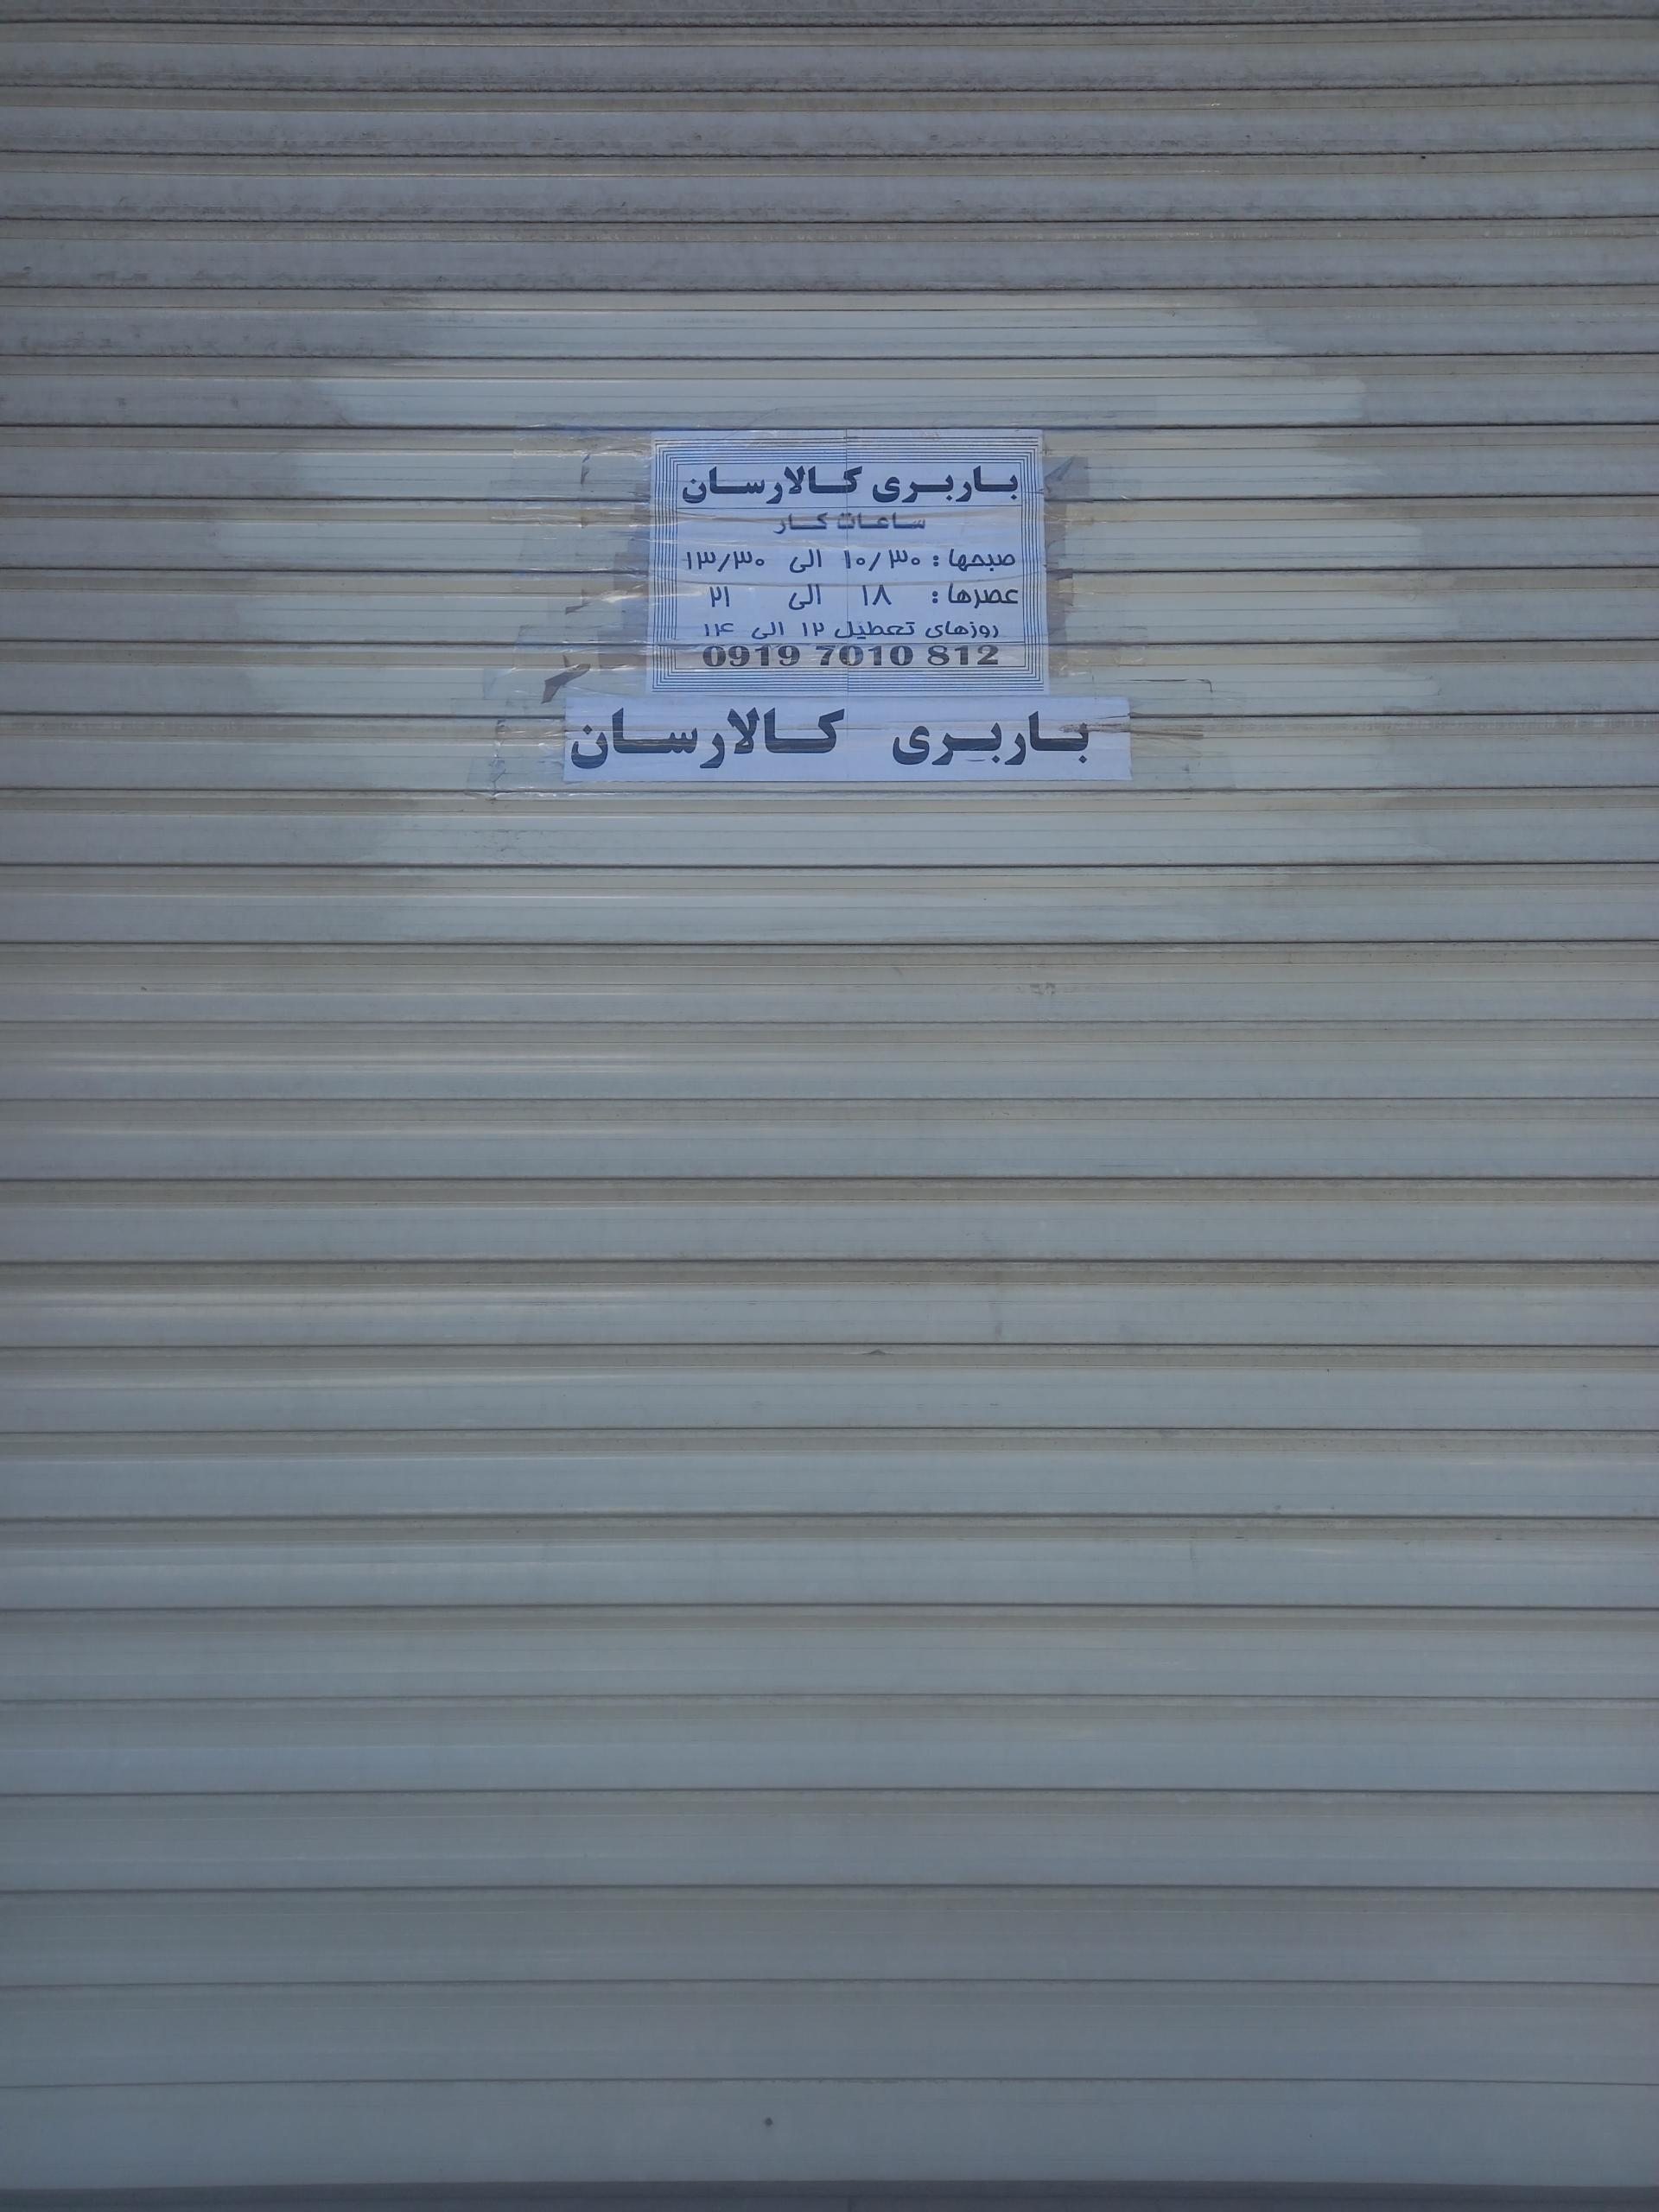 باربری کالارسان
ساعات کار
صبحها : ۱۰/۳۰ الی ۱۳/۳۰
عصرها : ۱۸ الی ۲۱
روزهای تعطیل ۱۲ الی ۱۴
0919 7010 812
باربری کالارسان